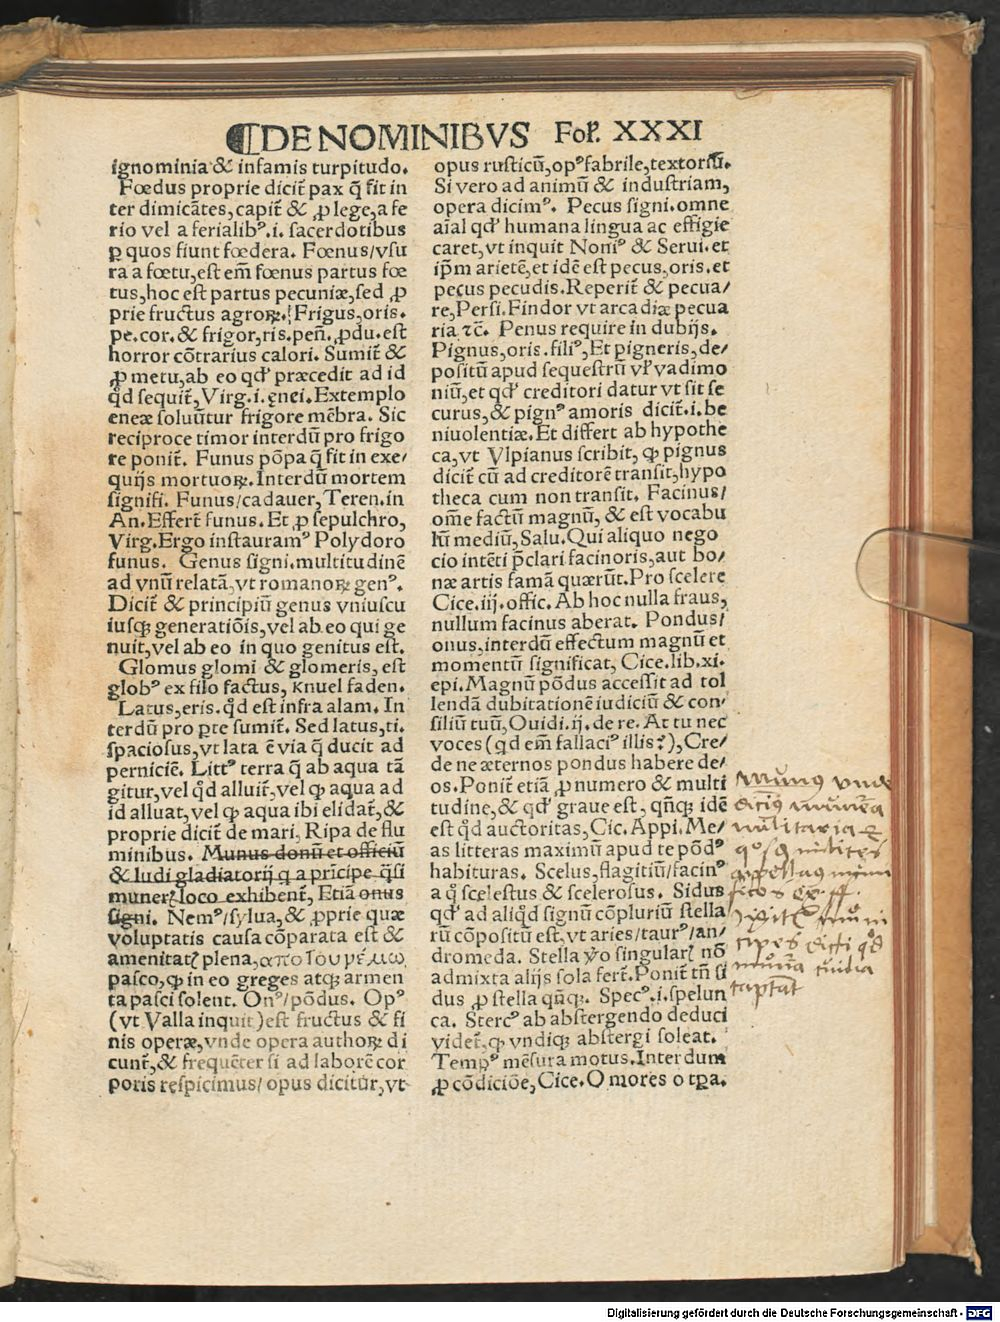 ¶DE NOMINIBVS Foł. XXXI
ignominia & infamis turpitudo.
Fœdus proprie dicit̃ pax q̃ fit in
ter dimicãtes, capit̃ & ꝓ lege, a fe
rio vel a ferialibꝰ.i. sacerdotibus
ꝑ quos fiunt fœdera. Fœnus/vsu
ra a fœtu, est em̃ fœnus partus fœ
tus, hoc est partus pecuniæ, sed ꝓ
prie fructus agroꝝ. Frigus, oris.
pe.cor. & frigor, ris. peñ. ꝓdu. est
horror cõtrarius calori. Sumit̃ &
ꝓ metu, ab eo qđ præcedit ad id
q̊d sequit̃, Virg.i. ęnei. Extemplo
eneæ soluũtur frigore mẽbra. Sic
reciproce timor interdũ pro frigo
re ponit̃. Funus põpa q̃ fit in exe/
quijs mortuoꝝ. Interdũ mortem
signifi. Funus/cadauer, Teren. in
An. Effert̃ funus. Et ꝓ sepulchro,
Virg. Ergo instauramꝰ Polydoro
funus. Genus signi. multitudinẽ
ad vnũ relatã, vt romanoꝝ genꝰ.
Dicit̃ & principiũ genus vniuscu
iusqꝫ generatiõis, vel ab eo qui ge
nuit, vel ab eo in quo genitus est.
Glomus glomi & glomeris, est
globꝰ ex filo factus, knuel faden.
Latus, eris. q̊d est infra alam. In
terdũ pro ꝑte sumit̃. Sed latus, ti.
spaciosus, vt lata ẽ via q̃ ducit ad
perniciẽ. Littꝰ terra q̃ ab aqua tã
gitur, vel q̊d alluit̃, vel ꝙ aqua ad
id alluat, vel ꝙ aqua ibi elidat̃, &
proprie dicit̃ de mari, Ripa de flu
minibus. Munus donũ et officiũ
& ludi gladiatorij q a prĩcipe q̃si
munerꝭ loco exhibent̃, Etiã onus
signi. Nemꝰ/sylua, & ꝓprie quæ
voluptatis causa cõparata est &
amenitatꝭ plena, ἀπὸ τοῦ νέμω,
pasco, ꝙ in eo greges atqꝫ armen
ta pasci solent. Onꝰ/põdus. Opꝰ
(vt Valla inquit) est fructus & fi
nis operæ, vnde opera authoꝝ di
cunt̃, & frequẽter si ad laborẽ cor
poris respicimus/ opus dicitur, vt
opus rusticũ, opꝰ fabrile, textoriũ.
Si vero ad animũ & industriam,
opera dicimꝰ. Pecus signi. omne
aĩal qđ humana lingua ac effigie
caret, vt inquit Noniꝰ & Serui. et
ip̃m arietẽ, et idẽ est pecus, oris. et
pecus pecudis. Reperit̃ & pecua/
re, Persi. Findor vt arcadiæ pecua
ria ⁊c̃. Penus require in dubijs.
Pignus, oris. filiꝰ, Et pigneris, de/
positũ apud sequestrũ vł vadimo
niũ, et qđ creditori datur vt sit se
curus, & pignꝰ amoris dicit̃.i. be
niuolentiæ. Et differt ab hypothe
ca, vt Vlpianus scribit, ꝙ pignus
dicit̃ cũ ad creditorẽ transit, hypo
theca cum non transit. Facinus/
om̃e factũ magnũ, & est vocabu
lũ mediũ, Salu. Qui aliquo nego
cio intẽti p̃clari facinoris, aut bo/
næ artis famã quærũt. Pro scelere
Cice. iij. offic. Ab hoc nulla fraus,
nullum facinus aberat. Pondus/
onus, interdũ effectum magnũ et
momentũ significat, Cice. lib. xi.
epi. Magnũ põdus accessit ad tol
lendã dubitationẽ iudiciũ & con/
siliũ tuũ, Ouidi. ij. de re. At tu nec
voces (qd em̃ fallaciꝰ illis?), Cre/
de ne æternos pondus habere de/
os. Ponit̃ etiã ꝓ numero & multi
tudine, & qđ graue est, qñqꝫ idẽ
est q̊d auctoritas, Cic. Appi. Me/
as litteras maximũ apud te põdꝰ
habituras. Scelus, flagitiũ/facinꝰ
a q̊ scelestus & scelerosus. Sidus
qđ ad aliq̊d signũ cõpluriũ stella
rũ cõpositũ est, vt aries/taurꝰ/an/
dromeda. Stella ỹo singularꝭ nõ
admixta alijs sola fert̃. Ponit̃ tñ si
dus ꝓ stella qñqꝫ. Specꝰ.i. spelun
ca. Stercꝰ ab abstergendo deduci
videt̃, ꝙ vndiqꝫ abstergi soleat.
Tempꝰ mẽsura motus. Interdum
ꝓ cõdiciõe, Cice. O mores o tꝑa.
Munus vnde
militaria
milites
ff.
Digitalisierung gefördert durch die Deutsche Forschungsgemeinschaft - DFG